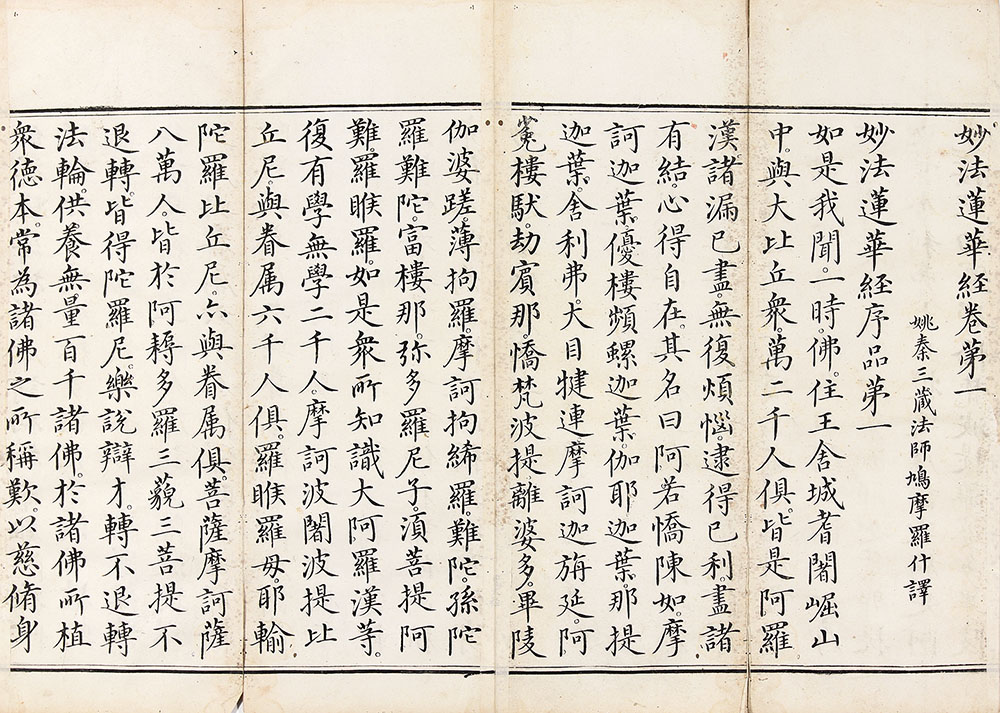 妙法蓮華経卷苐一
姚秦三藏法師鳩摩羅什譯
妙法蓮華経序品苐一
如是我聞。一時。佛。住王舍城耆闍崛山
中。與大比丘衆。萬二千人俱。皆是阿羅
漢諸漏已盡。無復煩惱。逮得已利。盡諸
有結。心得自在。其名曰阿若憍陳如。摩
訶迦葉。優樓頻螺迦葉。伽耶迦葉。那提
迦葉。舍利弗。大目犍連摩訶迦旃延。阿
㝹樓馱。劫賓那。憍梵波提離婆多。畢陵
伽婆蹉。薄拘羅。摩訶拘絺羅。難陀。孫陀
羅難陀。富樓那。弥多羅尼子。湏菩提阿
難。羅睺羅。如是衆所知識大阿羅漢等。
復有學無學二千人。摩訶波闍波提比
丘尼。與眷属六千人俱。羅睺羅母。耶輸
陀羅比丘尼。亦與眷属俱。菩薩摩訶薩
八萬人。皆於阿耨多羅三藐三菩提不
退轉。皆得陀羅尼。樂說辯才。轉不退轉
法輪。供養無量百千諸佛。於諸佛所植
衆德本。常為諸佛之所稱歎。以慈脩身